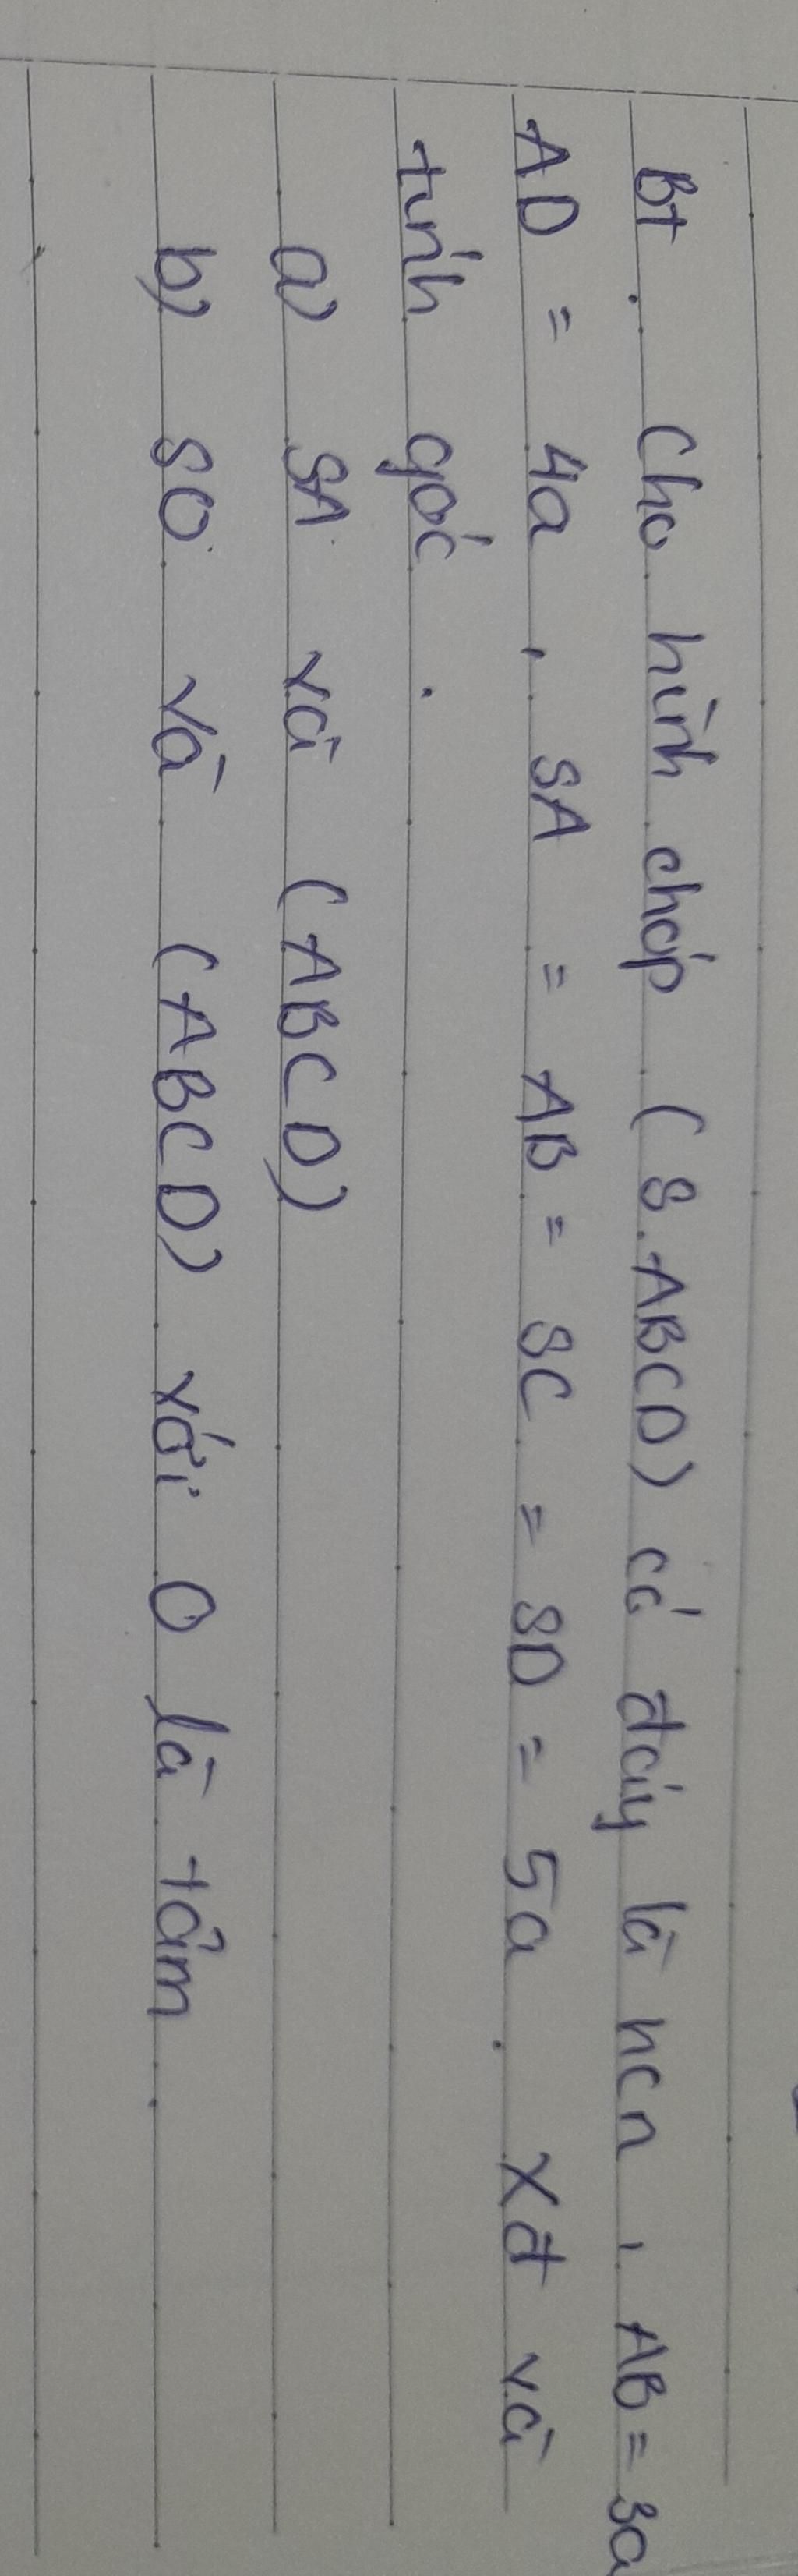 Bt. Cho hình chóp (S.ABCD) có đáy là hcn, AB = 3a
AD = 4a, SA = AB = SC = SD = 5a. xđ và
tính góc.
a) SA và (ABCD)
b) SO và (ABCD) với O là tâm